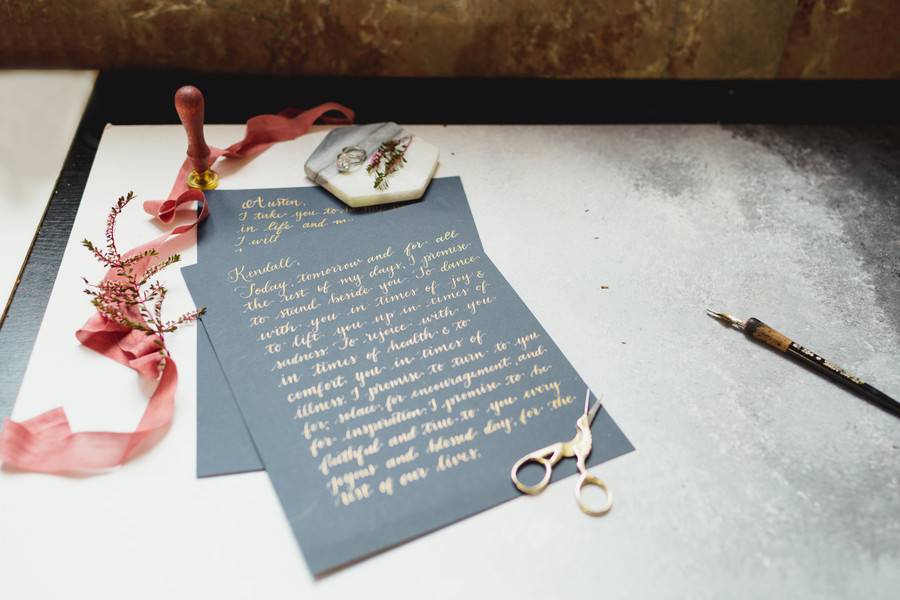 Austen,
I take you to
in life and
I will
Kendall,
Today, tomorrow and for all
the rest of my days, I promise
to stand beside you. To dance
with you in times of joy &
to lift you up in times of
sadness. To rejoice with you
in times of health & to
comfort you in times of
illness. I promise to turn to you
for solace, for encouragement and
for inspiration. I promise to be
faithful and true to you every
joyous and blessed day, for the
rest of our lives.